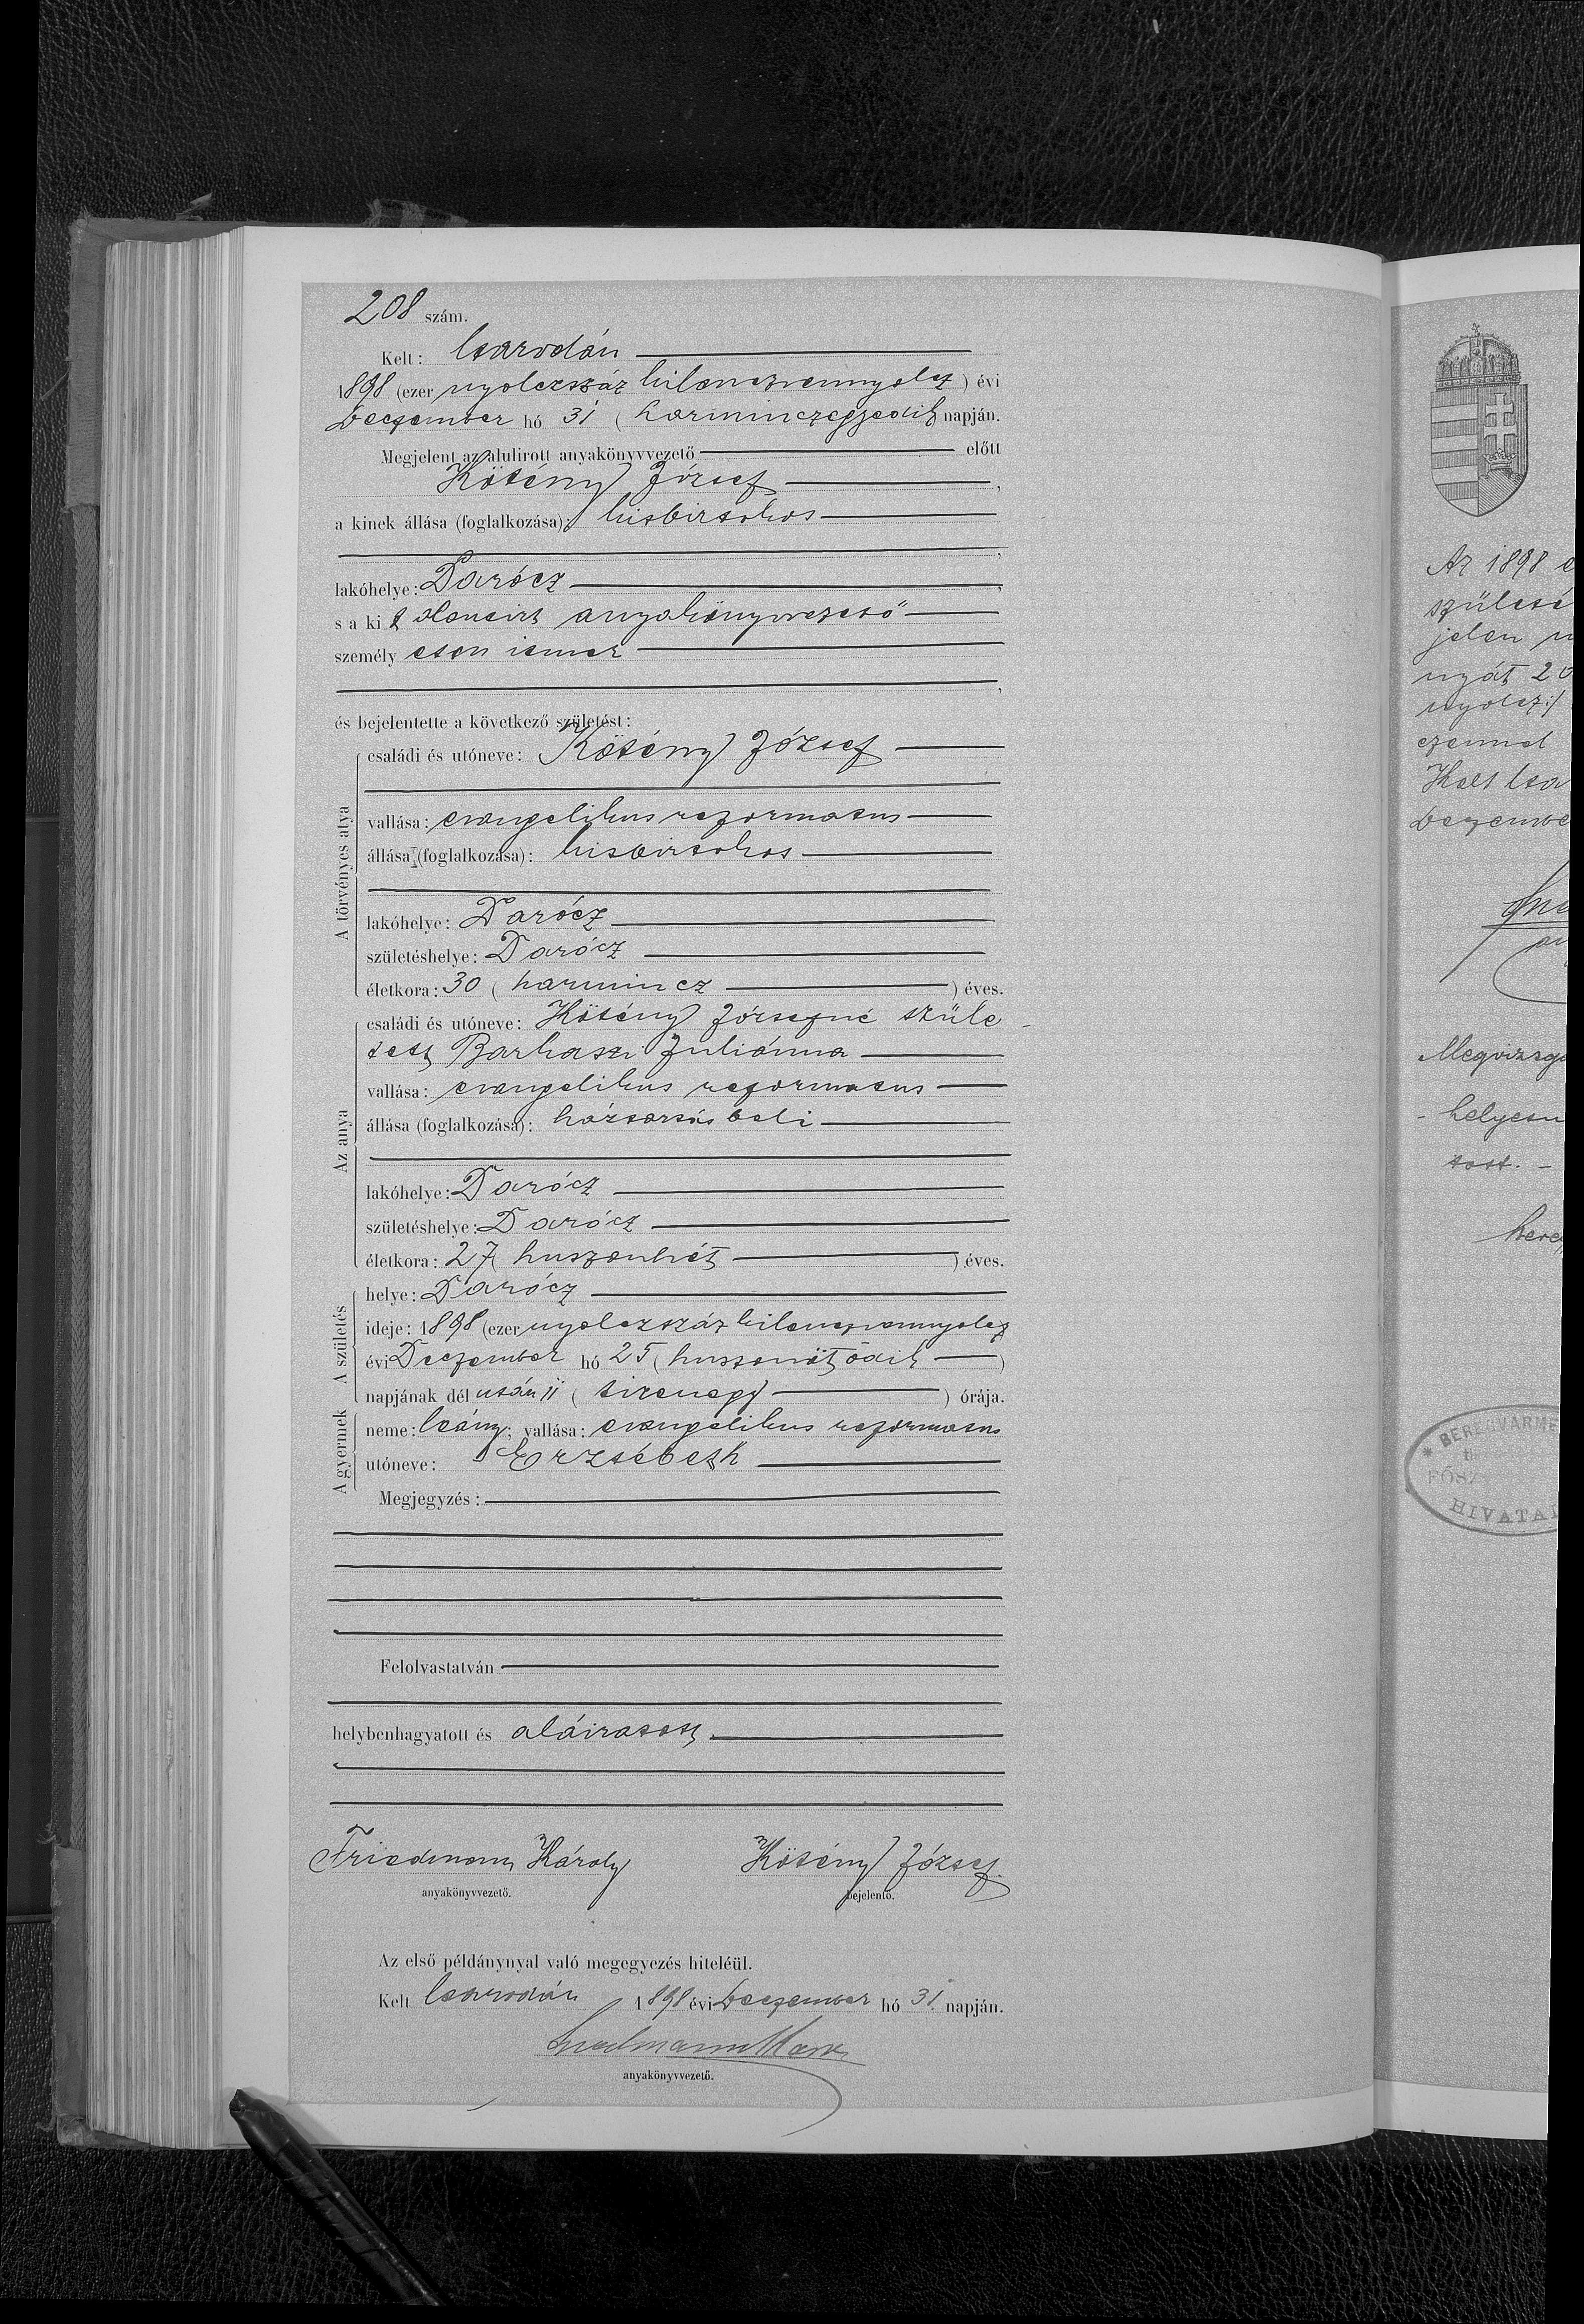 208 szám.
Kelt: Csarodán
1898 (ezer nyolczszáz kilenczvennyolcz) évi
Deczember hó 31 (harminczegyedik) napján.
Megjelent az alulirott anyakönyvvezető előtt
Kötény József,
a kinek állása (foglalkozása): kisbirtokos
,
lakóhelye: Darócz,
s a kit alulirt anyakönyvvezető
személyesen ismer
,
és bejelentette a következő születést:
A törvényes atya
családi és utóneve: Kötény József
vallása: evangelikus reformatus
állása (foglalkozása): kisbirtokos
lakóhelye: Darócz
születéshelye: Darócz
életkora: 30 (harmincz) éves.
Az anya
családi és utóneve: Kötény Józsefné szüle-
tett Barkaszi Juliánna
vallása: evangelikus reformatus
állása (foglalkozása): háztartásbeli
lakóhelye: Darócz
születéshelye: Darócz
életkora: 27 (huszonhét) éves.
A születés
helye: Darócz
ideje: 1898 (ezer nyolczszáz kilenczvennyolcz
évi Deczember hó 25 (huszonötödik)
napjának dél után 11 (tizenegy) órája.
A gyermek
neme: leány; vallása: evangelikus reformatus
utóneve: Erzsébeth
Megjegyzés:
Felolvastatván
helybenhagyatott és aláiratott.
Friedmann Károly Kötény József.
anyakönyvvezető. bejelentő.
Az első példánynyal való megegyezés hiteléül.
Kelt Csarodán 1898 évi Deczember hó 31 napján.
anyakönyvvezető.
Az 1898
születé
jelen
nyát 20
nyolcz:/
ezennel
Kelt Csa
Decembe
Megvizsgá
helyesn
tott. -
BEREGVÁRME
HIVATAL